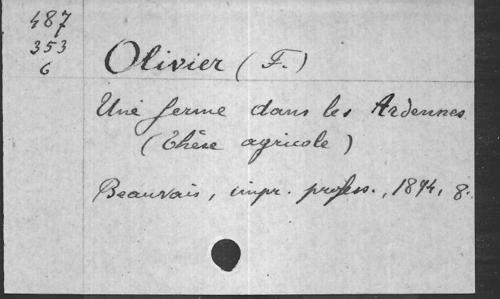 487
353
6
Olivier (F.)
Une ferme dans les Ardennes
(Thèse agricole)
Beauvais, impr. profess., 1894, 8.